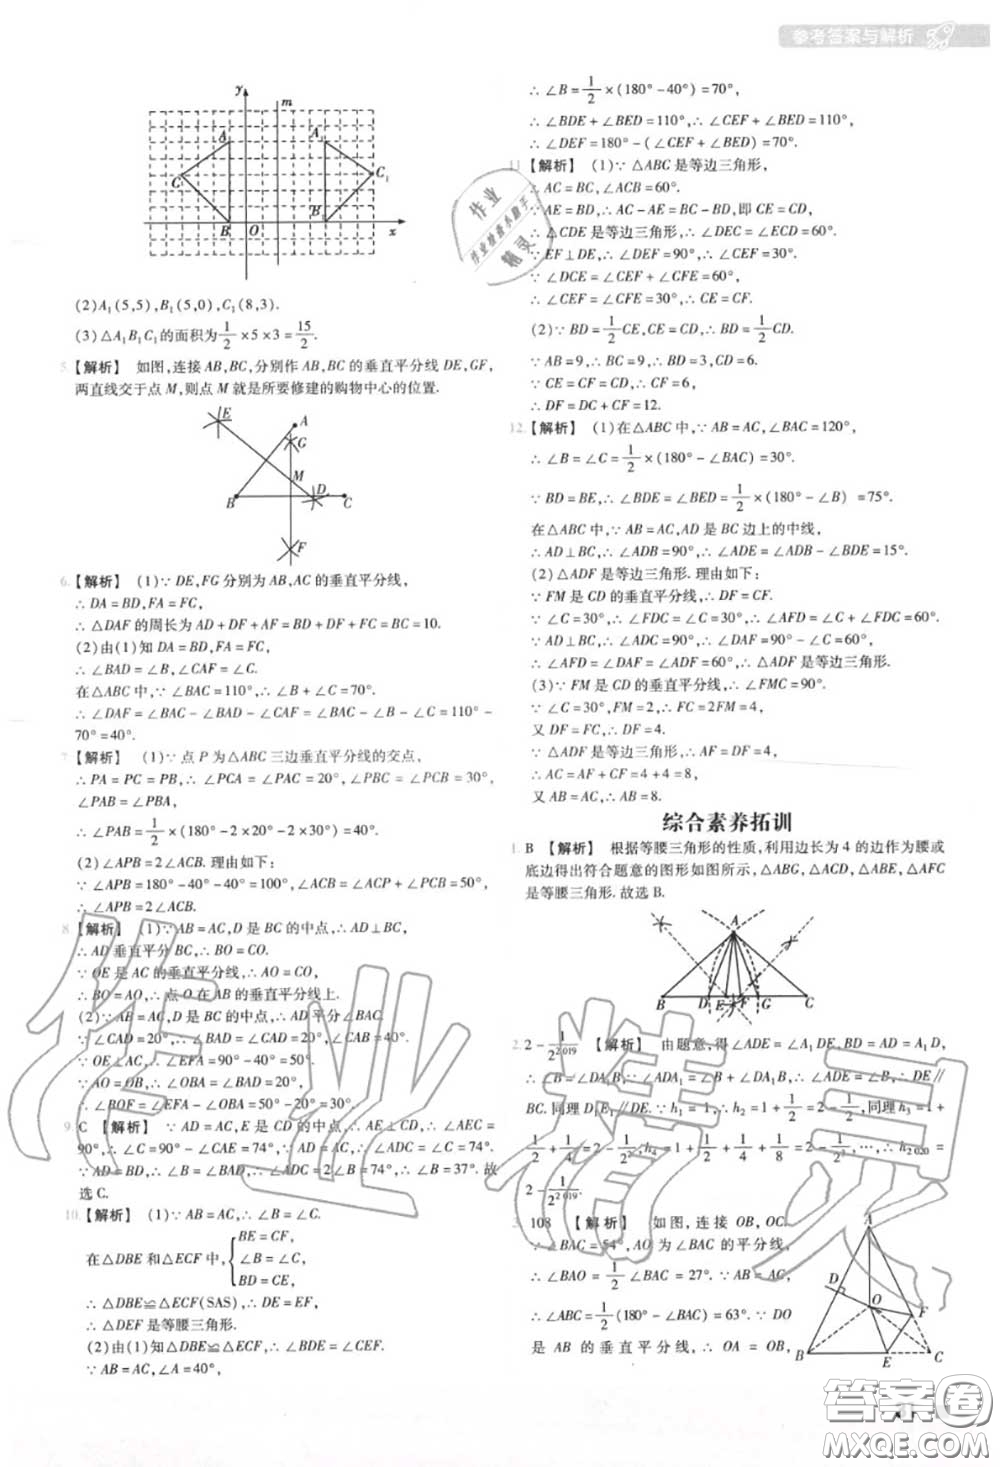 参考答案与解析
y
m
A
A₁
C
C₁
B
O
B₁
x
(2)A₁(5,5),B₁(5,0),C₁(8,3).
(3)△A₁B₁C₁的面积为1/2×5×3=15/2.
5.【解析】 如图,连接AB,BC,分别作AB,BC的垂直平分线DE,GF,
两直线交于点M,则点M就是所要修建的购物中心的位置.
E
A
G
M
B
D
C
F
6.【解析】 (1)∵DE,FG分别为AB,AC的垂直平分线,
∴DA=BD,FA=FC,
∴△DAF的周长为AD+DF+AF=BD+DF+FC=BC=10.
(2)由(1)知DA=BD,FA=FC,
∴∠BAD=∠B,∠CAF=∠C.
在△ABC中,∵∠BAC=110°,∴∠B+∠C=70°.
∴∠DAF=∠BAC-∠BAD-∠CAF=∠BAC-∠B-∠C=110°-
70°=40°.
7.【解析】 (1)∵点P为△ABC三边垂直平分线的交点,
∴PA=PC=PB,∴∠PCA=∠PAC=20°,∠PBC=∠PCB=30°,
∠PAB=∠PBA,
∴∠PAB=1/2×(180°-2×20°-2×30°)=40°.
(2)∠APB=2∠ACB.理由如下:
∵∠APB=180°-40°-40°=100°,∠ACB=∠PCA+∠PCB=50°,
∴∠APB=2∠ACB.
8.【解析】 (1)∵AB=AC,D是BC的中点,∴AD⊥BC,
∴AD垂直平分BC,∴BO=CO.
∵OE是AC的垂直平分线,∴AO=CO,
∴BO=AO,∴点O在AB的垂直平分线上.
(2)∵AB=AC,D是BC的中点,∴AD平分∠BAC.
∵∠CAD=20°,∴∠BAD=∠CAD=20°,∠CAB=40°.
∵OE⊥AC,∴∠EFA=90°-40°=50°.
∵AO=OB,∴∠OBA=∠BAD=20°,
∴∠BOF=∠EFA-∠OBA=50°-20°=30°.
9.C 【解析】 ∵AD=AC,E是CD的中点,∴AE⊥CD,∴∠AEC=
90°,∴∠C=90°-∠CAE=74°,∵AD=AC,∴∠ADC=∠C=74°,
∵AD=BD,∴∠BAD=∠B,∴∠ADC=2∠B=74°,∴∠B=37°.故
选C.
10.【解析】 (1)∵AB=AC,∴∠B=∠C.
在△DBE和△ECF中,{BE=CF, ∠B=∠C, BD=CE,
∴△DBE≌△ECF(SAS),∴DE=EF,
∴△DEF是等腰三角形.
(2)由(1)知△DBE≌△ECF,∴∠BDE=∠CEF.
∵AB=AC,∠A=40°,
∴∠B=1/2×(180°-40°)=70°,
∴∠BDE+∠BED=110°,∴∠CEF+∠BED=110°,
∴∠DEF=180°-(∠CEF+∠BED)=70°.
11.【解析】 (1)∵△ABC是等边三角形,
∴AC=BC,∠ACB=60°.
∵AE=BD,∴AC-AE=BC-BD,即CE=CD,
∴△CDE是等边三角形,∴∠DEC=∠ECD=60°.
∵EF⊥DE,∴∠DEF=90°,∴∠CEF=30°.
∵∠DCE=∠CEF+∠CFE=60°,
∴∠CEF=∠CFE=30°,∴CE=CF.
(2)∵BD=1/2CE,CE=CD,∴BD=1/2CD.
∵AB=9,∴BC=9,∴BD=3,CD=6.
∵CE=CF=CD,∴CF=6,
∴DF=DC+CF=12.
12.【解析】 (1)在△ABC中,∵AB=AC,∠BAC=120°,
∴∠B=∠C=1/2×(180°-∠BAC)=30°.
∵BD=BE,∴∠BDE=∠BED=1/2×(180°-∠B)=75°.
在△ABC中,∵AB=AC,AD是BC边上的中线,
∴AD⊥BC,∴∠ADB=90°,∴∠ADE=∠ADB-∠BDE=15°.
(2)△ADF是等边三角形.理由如下:
∵FM是CD的垂直平分线,∴DF=CF.
∵∠C=30°,∴∠FDC=∠C=30°,∴∠AFD=∠C+∠FDC=60°.
∵AD⊥BC,∴∠ADC=90°,∴∠DAF=90°-∠C=60°,
∴∠AFD=∠DAF=∠ADF=60°,∴△ADF是等边三角形.
(3)∵FM是CD的垂直平分线,∴∠FMC=90°.
∵∠C=30°,FM=2,∴FC=2FM=4,
又DF=FC,∴DF=4,
∵△ADF是等边三角形,∴AF=DF=4,
∴AC=AF+CF=4+4=8,
又AB=AC,∴AB=8.
综合素养拓训
1.B 【解析】 根据等腰三角形的性质,利用边长为4的边作为腰或
底边得出符合题意的图形如图所示,△ABG,△ACD,△ABE,△AFC
是等腰三角形.故选B.
A
B
D
E
F
G
C
2.2-1/2²⁰¹⁹ 【解析】 由题意,得∠ADE=∠A₁DE,AD=A₁D,
BC.同理D₁E₁∥BC.∵h₁=1,∴h₂=1+1/2=2-1/2,同理h₃=1+
1/2+1/4=2-1/2²,h₄=1+1/2+1/4+1/8=2-1/2³,…,∴h₂₀₂₀=
2-1/2²⁰¹⁹.
3.108 【解析】 如图,连接OB,OC.
∵∠BAC=54°,AO为∠BAC的平分线,
∴∠BAO=1/2∠BAC=27°.∵AB=AC,
∴∠ABC=1/2(180°-∠BAC)=63°.∵DO
是AB的垂直平分线,∴OA=OB,
A
D
O
F
B
E
C
作业精灵
答案圈
MXQE.COM